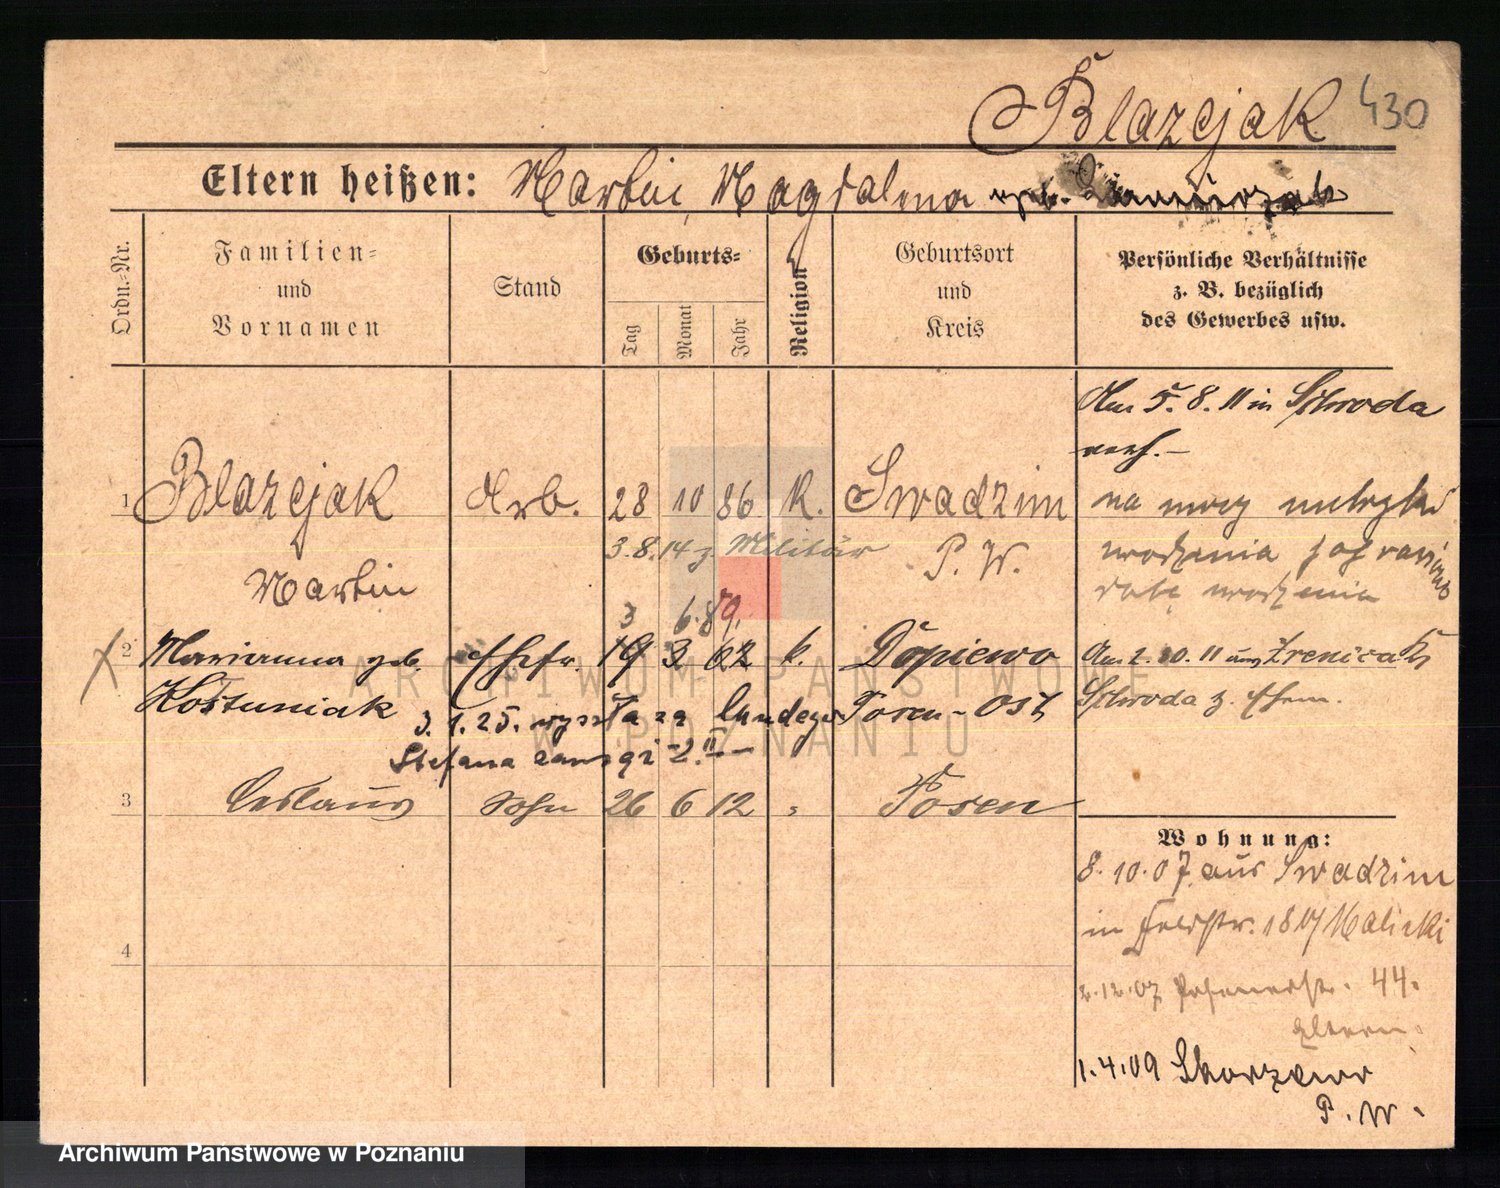 Blazejak 430
Eltern heißen: Martin, Magdalena geb.
Ordn.-Nr.
Familien=
und
Vornamen
Stand
Geburts=
Tag
Monat
Jahr
Religion
Geburtsort
und
Kreis
Persönliche Verhältnisse
z. B. bezüglich
des Gewerbes usw.
Am 5.8.11 in Schroda
verh.-
1 Blazejak Arb. 28 10 86 K. Swadzim
3.8.14 z. Militär P. W.
Martin
na mocy metryki
urodzenia
datę urodzenia
3 6.89.
2 Marianna geb. Ehefr. 19 3 62 k. Dopiewo
Kostuniak Posen-Ost
Am 2.10.11 aus Zrenica Kr
Schroda z. Ehem.
3.1.25. wyszła za
Stefana
3 Ceslaus Sohn 26 6 12 " Posen
Wohnung:
8.10.07. aus Swadzim
in Feldstr. 18 Malicki
2.12.07 Posenerstr. 44.
Eltern.
4
1.4.09 Skorzewo
P. W.
ARCHIWUM PAŃSTWOWE
W POZNANIU
Archiwum Państwowe w Poznaniu